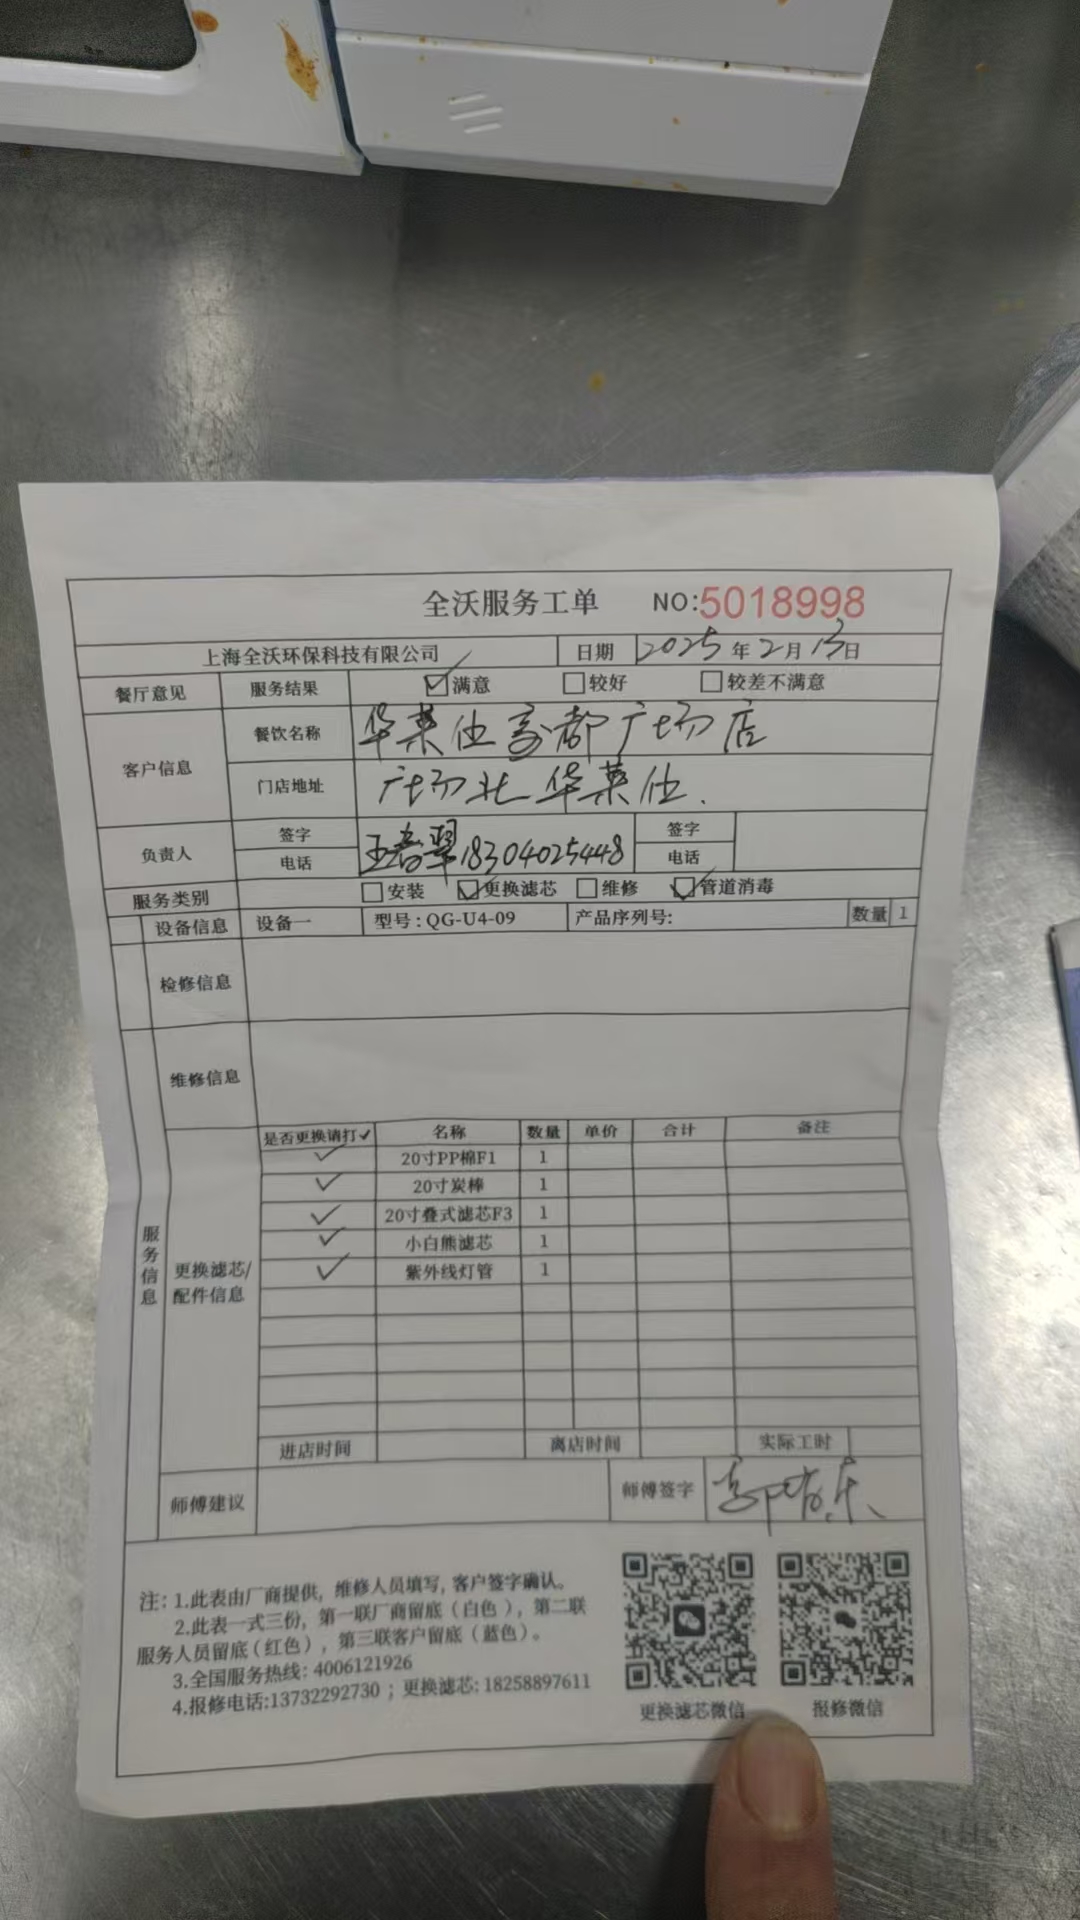 全沃服务工单 NO:5018998
上海全沃环保科技有限公司 日期 2025年2月13日
餐厅意见 服务结果 满意 较好 较差不满意
客户信息 餐饮名称 华莱仕豪都广场店
门店地址 广场北华莱仕.
负责人 签字 电话 18304025448 签字 电话
服务类别 安装 更换滤芯 维修 管道消毒
设备信息 设备一 型号:QG-U4-09 产品序列号: 数量 1
检修信息
维修信息
服务信息
更换滤芯/配件信息
是否更换请打✓ 名称 数量 单价 合计 备注
✓ 20寸PP棉F1 1
✓ 20寸炭棒 1
✓ 20寸叠式滤芯F3 1
✓ 小白熊滤芯 1
✓ 紫外线灯管 1
进店时间 离店时间 实际工时
师傅建议 师傅签字
注: 1.此表由厂商提供, 维修人员填写, 客户签字确认。
2.此表一式三份, 第一联厂商留底(白色), 第二联
服务人员留底(红色), 第三联客户留底(蓝色)。
3.全国服务热线: 4006121926
4.报修电话:13732292730 ; 更换滤芯: 18258897611
更换滤芯微信 报修微信